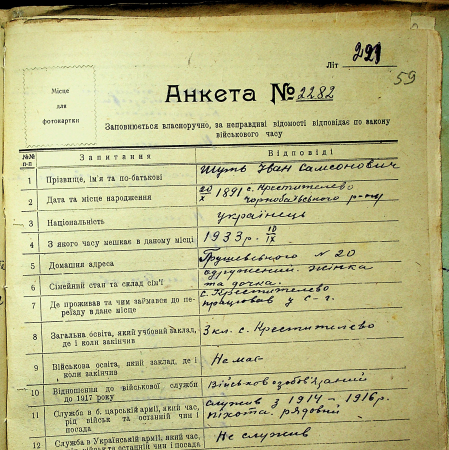 Літ 221
59
Місце
для
фотокартки
Анкета № 2282
Заповнюється власноручно, за неправдиві відомості відповідає по закону
військового часу
№№ п-п Запитання Відповіді
1 Прізвище, ім'я та по-батькові Шуть Іван Самсонович
2 Дата та місце народження 20/X 1891 с. Крестителево
Чорнобаївського р-ну
3 Національність українець
4 З якого часу мешкає в даному місці 1933 р. 10/IX
5 Домашня адреса Грушевського N 20
6 Сімейний стан та склад сім'ї одружений. жінка
та дочка.
7 Де проживав та чим займався до пе-
реїзду в дане місце с. Крестителево
працював у с-г.
8 Загальна освіта, який учбовий заклад,
де і коли закінчив 3 кл. с. Крестителево
9 Військова освіта, який заклад, де і
коли закінчив Немає
10 Відношення до військової служби
до 1917 року Військовозобов'язаний
11 Служба в б. царській армії, який час,
рід військ та останній чин і
посада служив з 1914 – 1916 р.
піхота. рядовий
12 Служба в Українській армії, який час,
рід військ та останній чин і посада Не служив